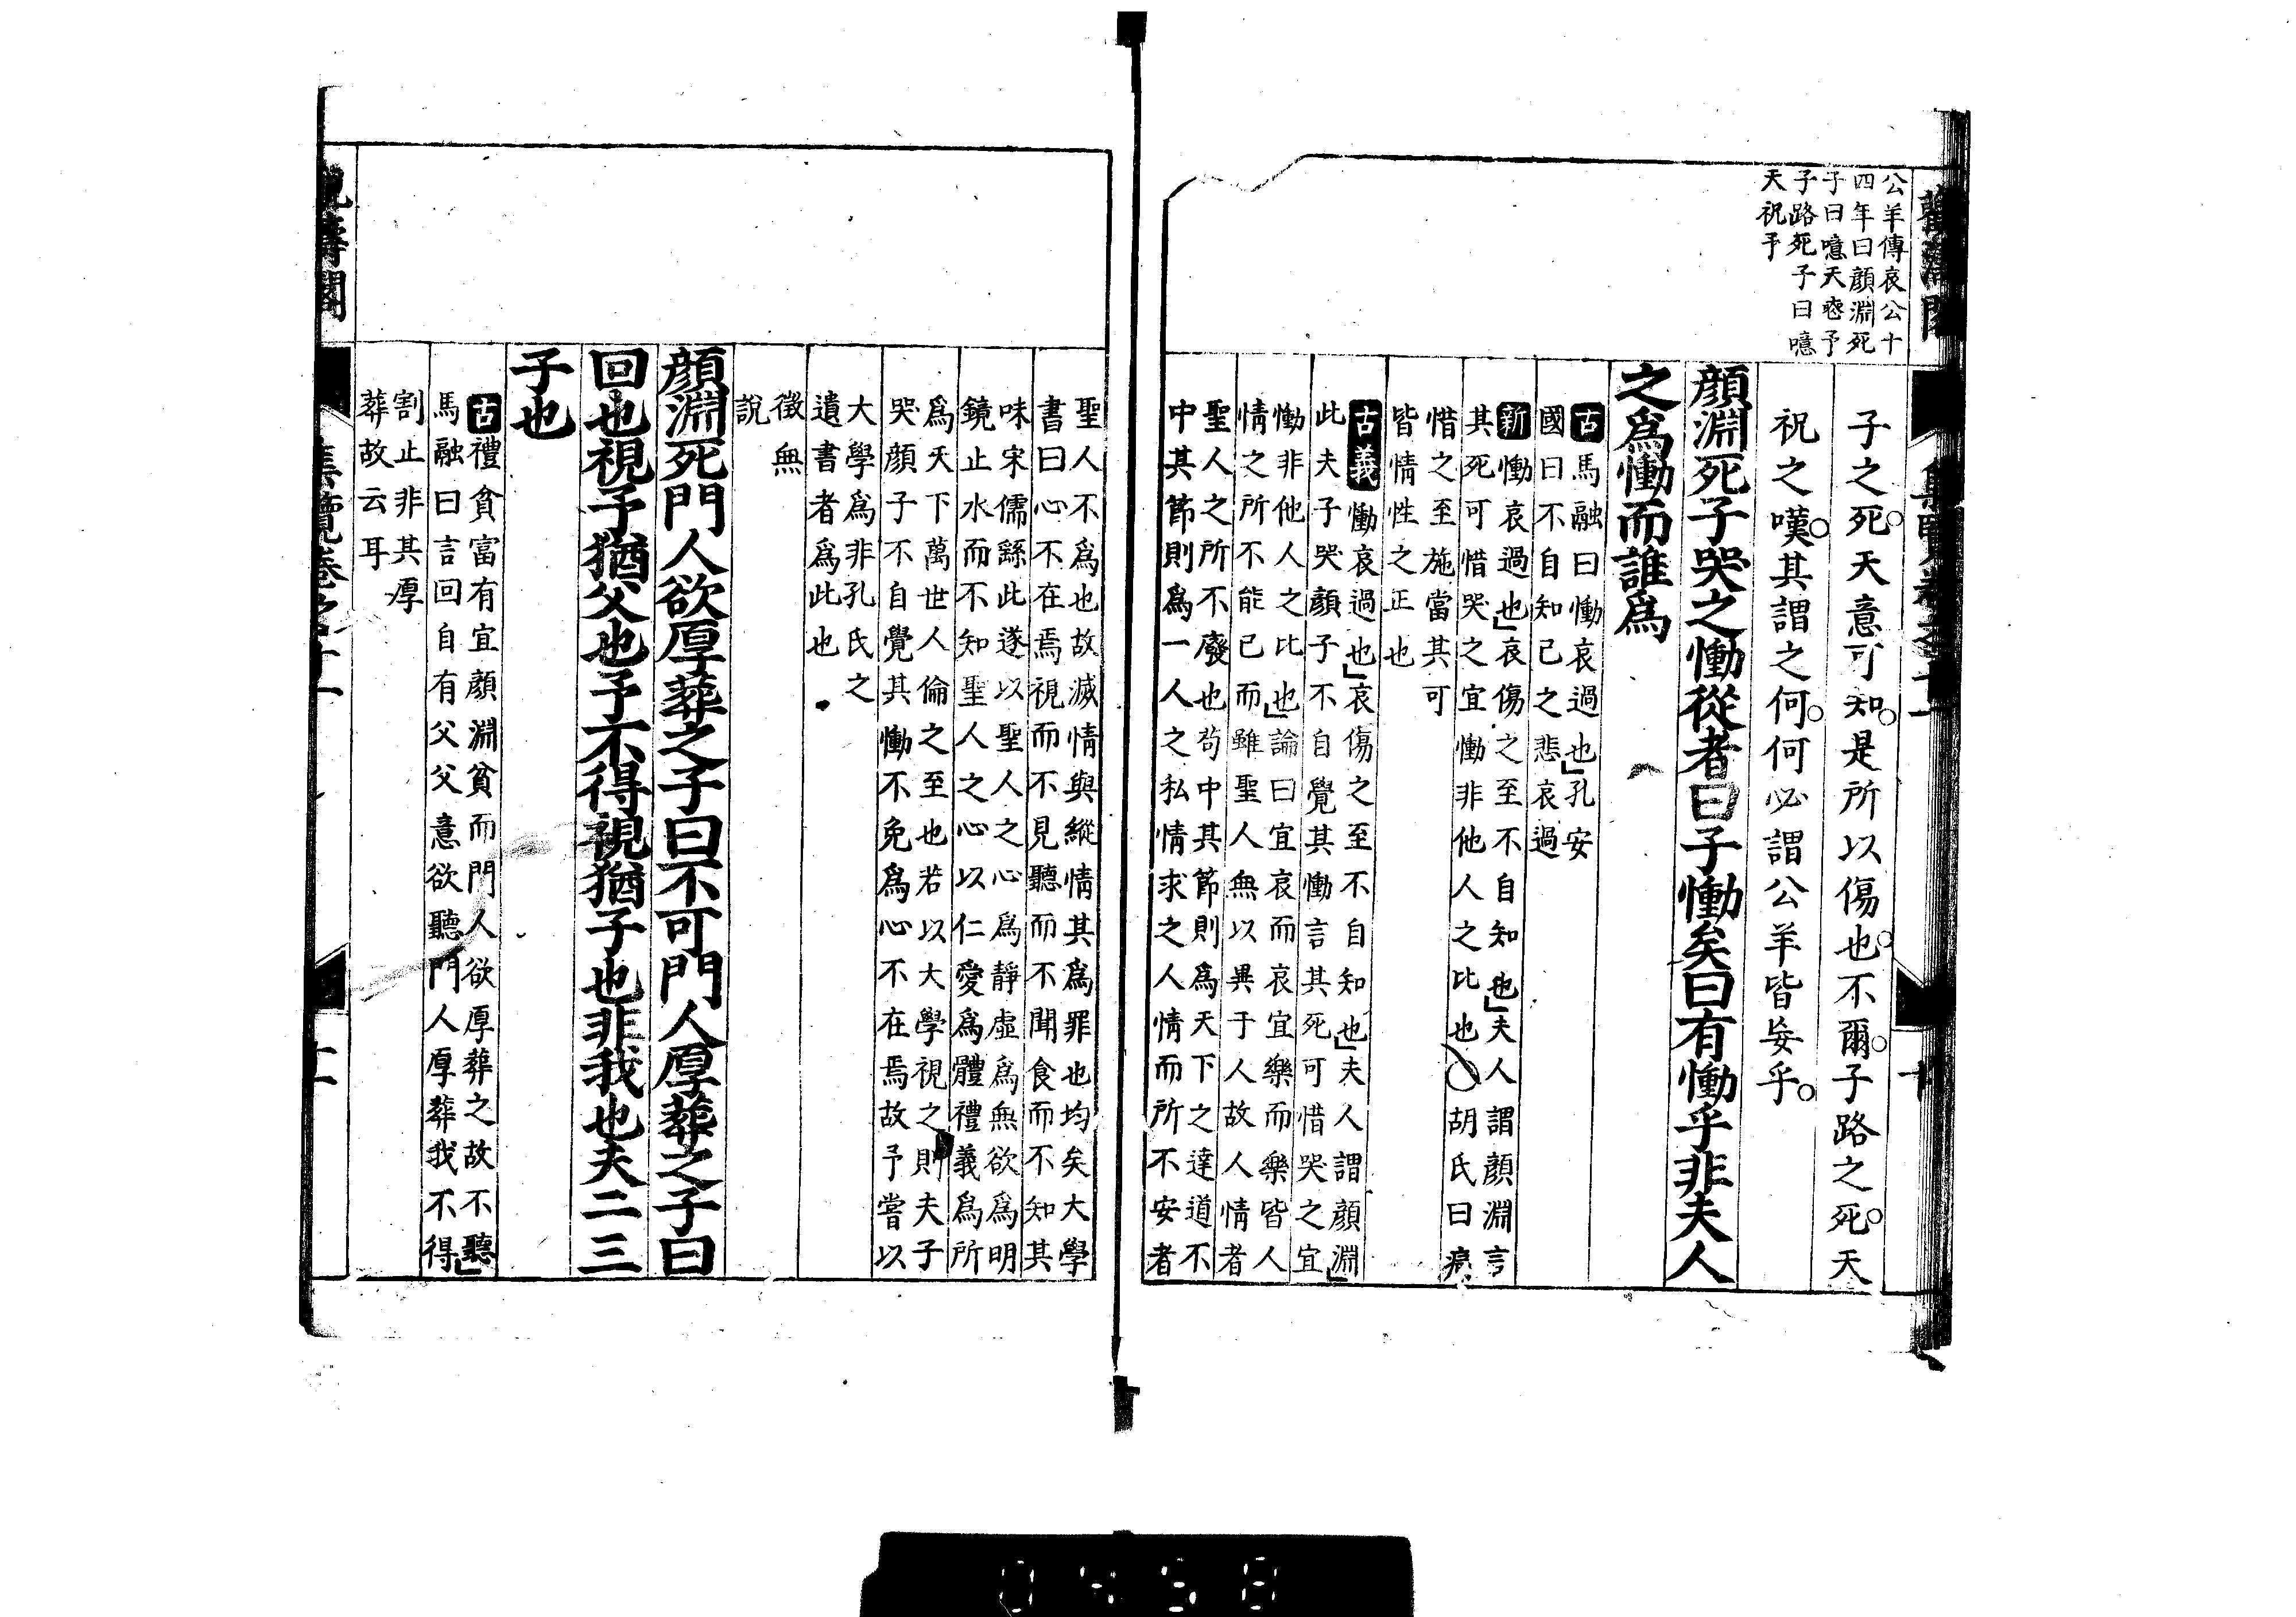 公羊傳哀公十
四年曰顔淵死
子曰噫天喪予
子路死子曰噫
天祝予
子之死天意可知是所以傷也不爾子路之死天
祝之嘆其謂之何何必謂公羊皆妄乎
顔淵死子哭之慟從者曰子慟矣曰有慟乎非夫人
之爲慟而誰爲
古馬融曰慟哀過也孔安
國曰不自知己之悲哀過
新慟哀過也哀傷之至不自知也夫人謂顔淵言
其死可惜哭之宜慟非他人之比也胡氏曰痛
惜之至施當其可
皆情性之正也
古義慟哀過也哀傷之至不自知也夫人謂顔淵
此夫子哭顔子不自覺其慟言其死可惜哭之宜
慟非他人之比也論曰宜哀而哀宜樂而樂皆人
情之所不能已而雖聖人無以異于人故人情者
聖人之所不廢也苟中其節則爲天下之達道不
中其節則爲一人之私情求之人情而所不安者
聖人不爲也故滅情與縱情其爲罪也均矣大學
書曰心不在焉視而不見聽而不聞食而不知其
味宋儒繇此遂以聖人之心爲靜虛爲無欲爲明
鏡止水而不知聖人之心以仁愛爲體禮義爲所
爲天下萬世人倫之至也若以大學視之則夫子
哭顔子不自覺其慟不免爲心不在焉故予嘗以
大學爲非孔氏之
遺書者爲此也
徵無
說
顔淵死門人欲厚葬之子曰不可門人厚葬之子曰
回也視予猶父也予不得視猶子也非我也夫二三
子也
古禮貧富有宜顔淵貧而門人欲厚葬之故不聽
馬融曰言回自有父父意欲聽門人厚葬我不得
割止非其厚
葬故云耳
0458